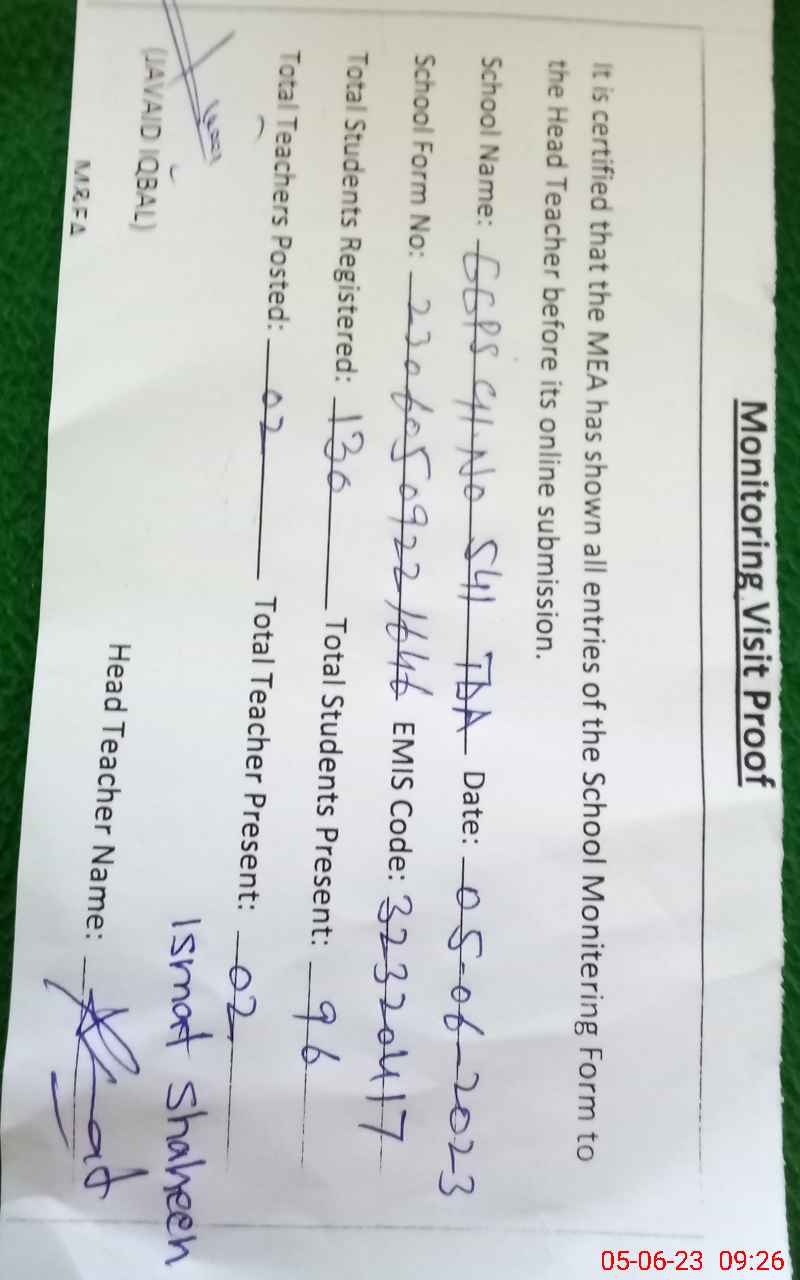 Monitoring Visit Proof
It is certified that the MEA has shown all entries of the School Monitering Form to
the Head Teacher before its online submission.
School Name: GGPS CH.NO 541 TDA Date: 05-06-2023
School Form No: 23060509221646 EMIS Code: 32320417
Total Students Registered: 130 Total Students Present: 96
Total Teachers Posted: 02 Total Teacher Present: 02
Ismat Shaheen
(JAVAID IQBAL)
Head Teacher Name:
05-06-23 09:26